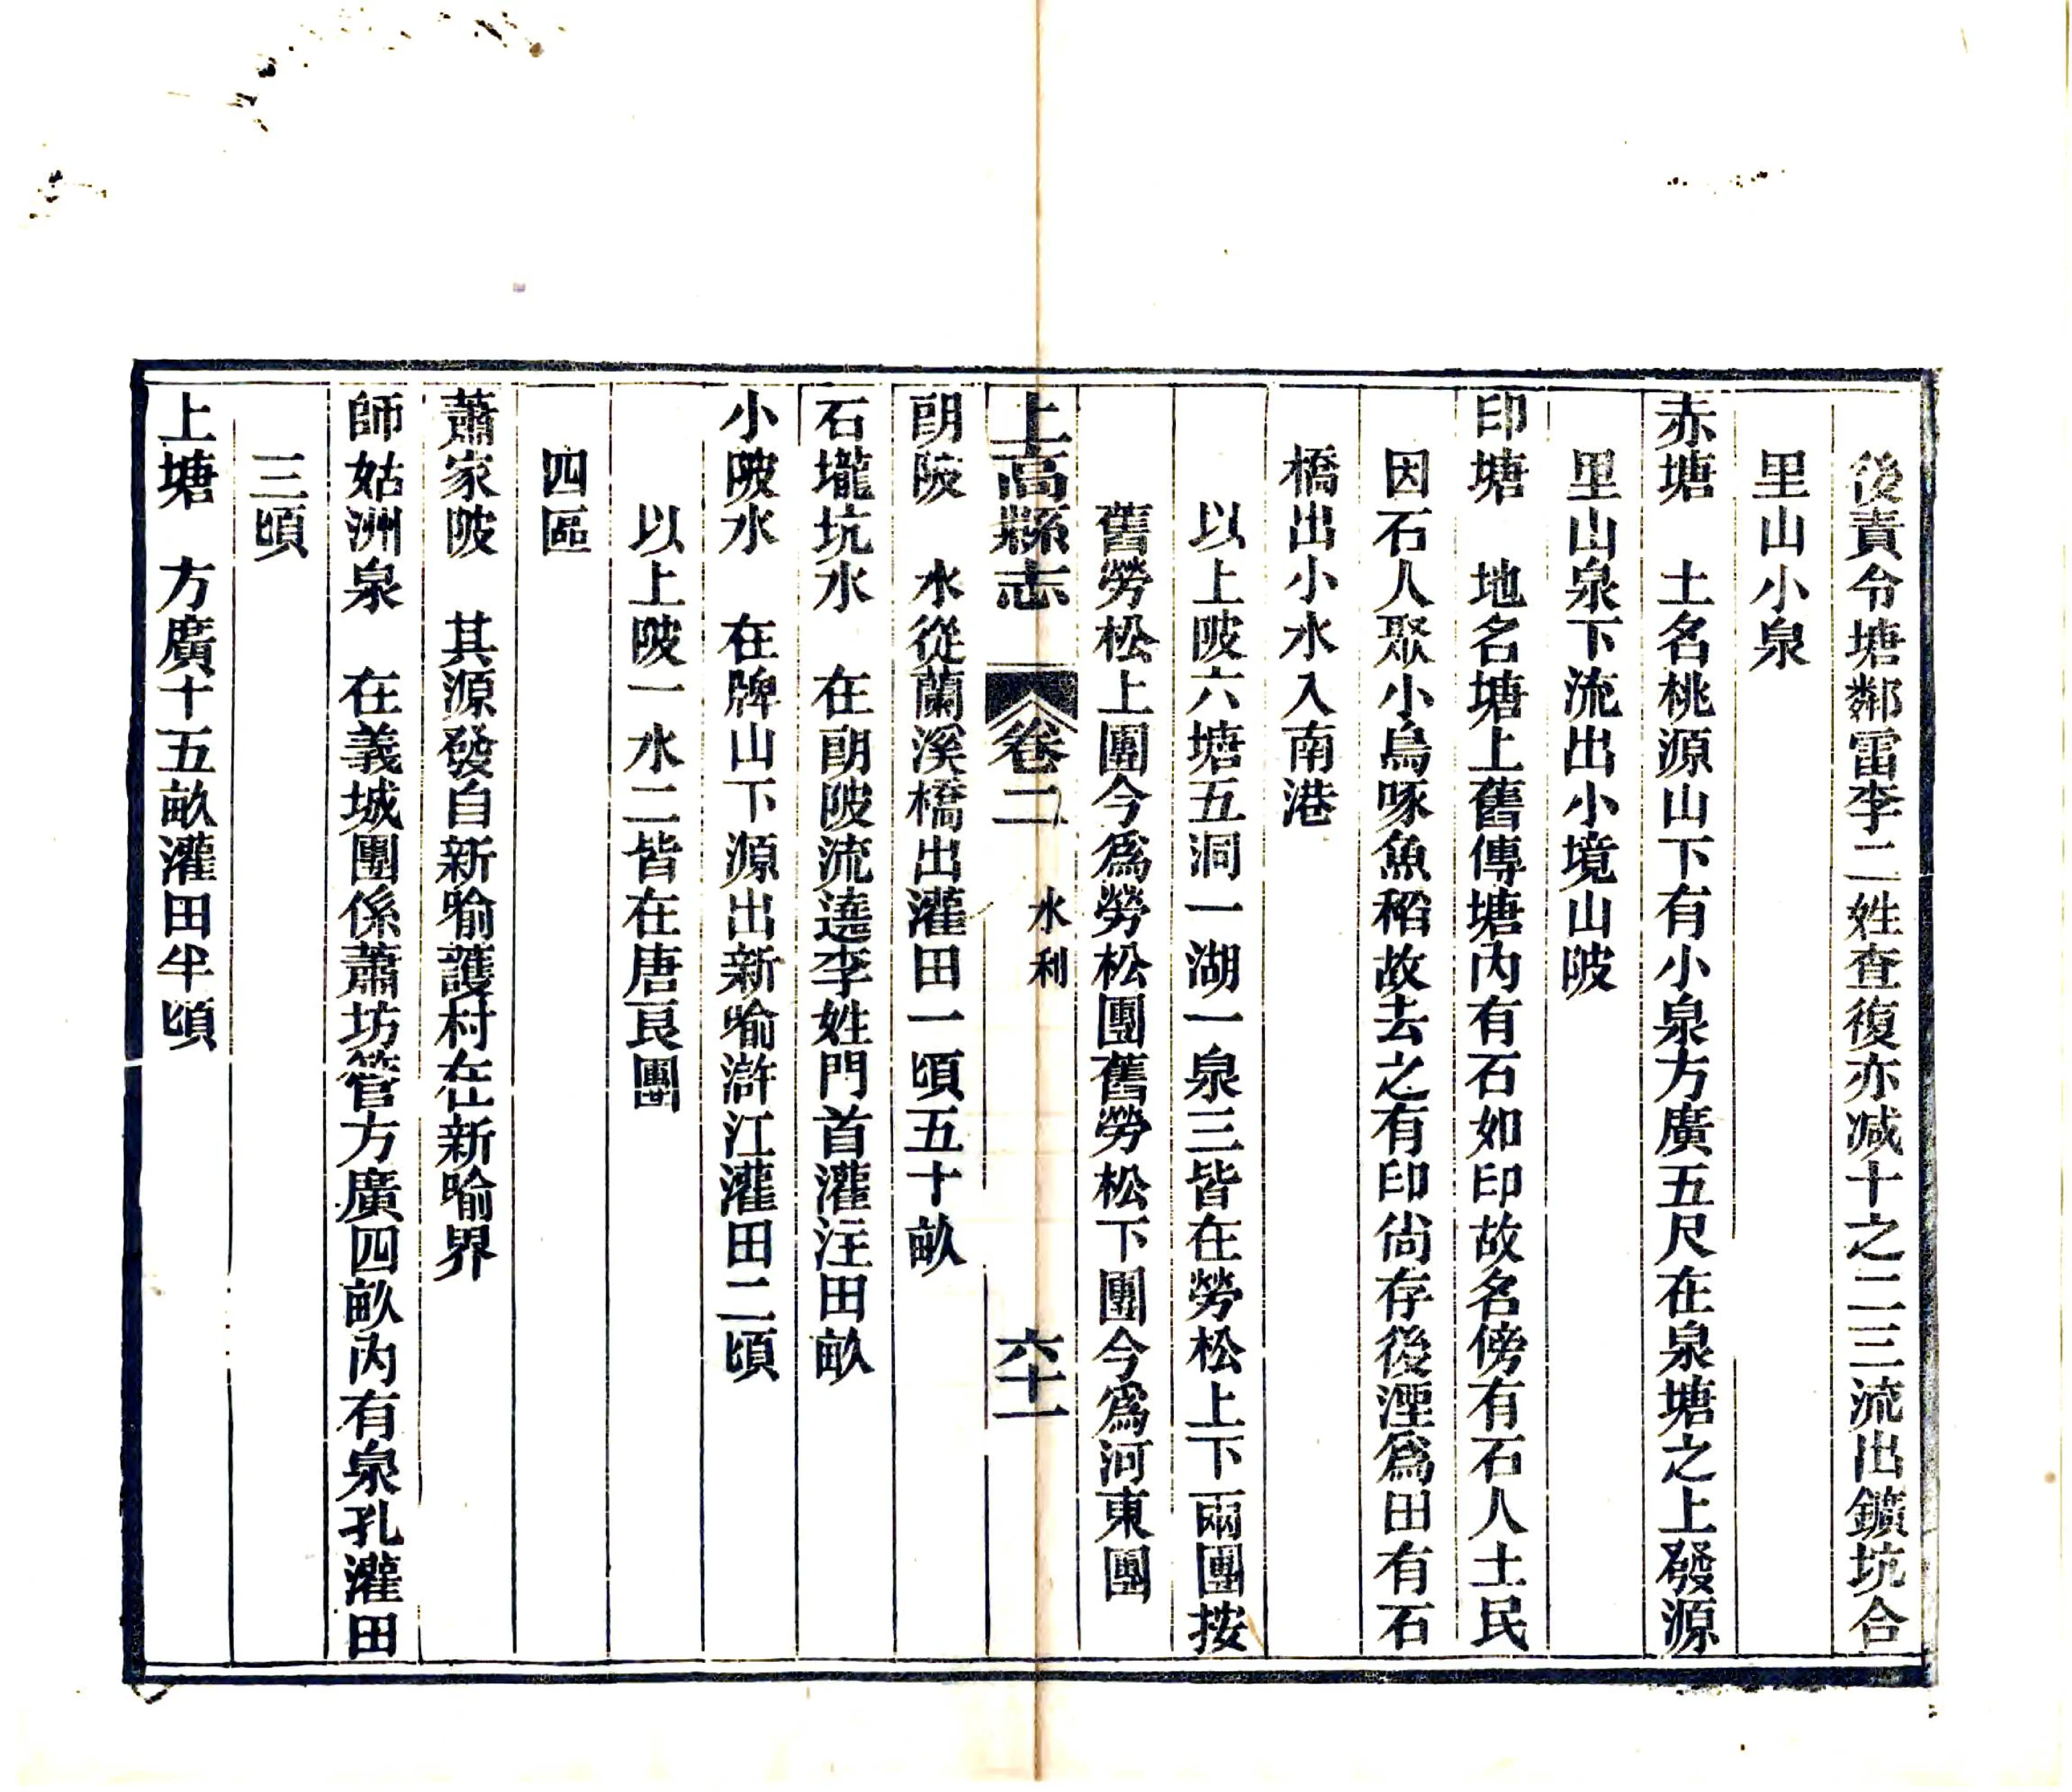 後責令塘鄰雷李二姓查復亦减十之二三流出鑛坑合
里山小泉
赤塘　土名桃源山下有小泉方廣五尺在泉塘之上發源
里山泉下流出小境山陂
印塘　地名塘上舊傳塘內有石如印故名傍有石人土民
因石人聚小鳥啄魚稻故去之有印尚存後湮爲田有石
橋出小水入南港
以上陂六塘五洞一湖一泉三皆在勞松上下兩團按
舊勞松上團今爲勞松團舊勞松下團今爲河東團
上高縣志　卷二　水利　六十一
朗陂　水從蘭溪橋出灌田一頃五十畝
石壠坑水　在朗陂流遶李姓門首灌注田畝
小陂水　在牌山下源出新喻滸江灌田二頃
以上陂一水二皆在唐良團
四區
蕭家陂　其源發自新喻護村在新喻界
師姑洲泉　在義城團係蕭坊管方廣四畝內有泉孔灌田
三頃
上塘　方廣十五畝灌田半頃